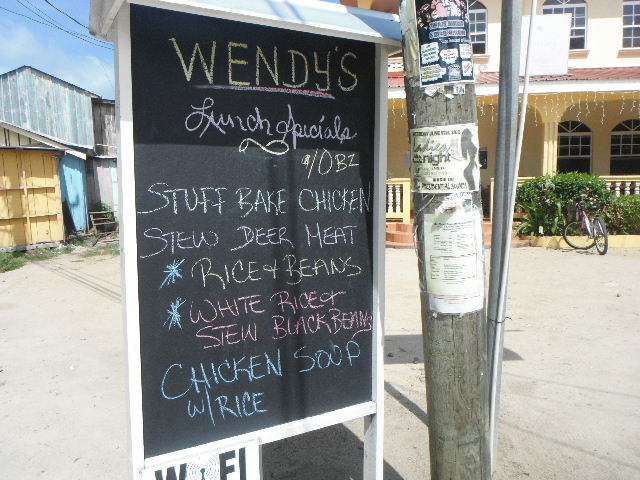 WENDY'S
Lunch Specials
$10BZ
STUFF BAKE CHICKEN
STEW DEER MEAT
* RICE & BEANS
* WHITE RICE &
STEW BLACK BEANS
CHICKEN SOUP
W/ RICE
WIFI
Ladies
night